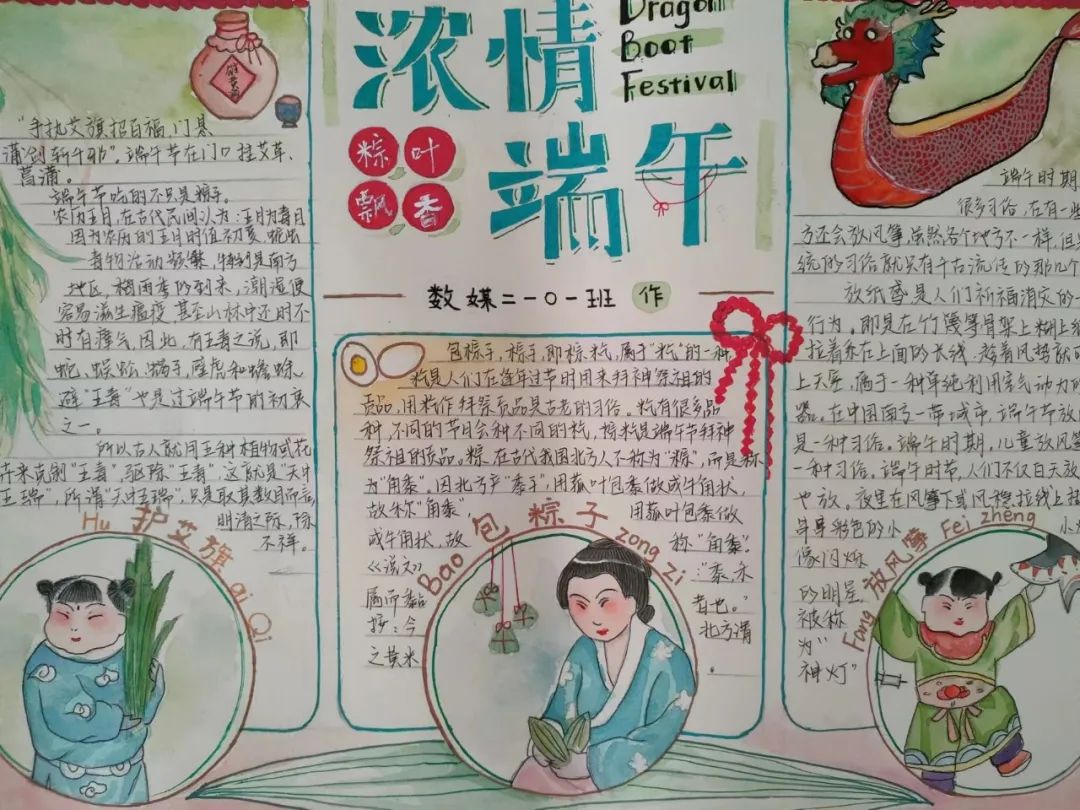 浓情
端午
Dragon
Boat
Festival
粽叶
飘香
数媒二一〇一班 作
"手执艾旗招百福,门悬
蒲剑斩千邪"。端午节在门口挂艾草、
菖蒲。
端午节吃的不只是粽子。
农历五月,在古代民间认为:五月为毒月
因为农历的五月时值初夏,蛇虫
毒物活动频繁,特别是南方
地区,梅雨季的到来,潮湿便
容易滋生瘟疫,甚至山林中还时不
时有瘴气,因此,有五毒之说,即
蛇、蜈蚣、蝎子、壁虎和蟾蜍,
避"五毒"也是过端午节的初衷
之一。
所以古人就用五种植物或花
卉来克制"五毒",驱除"五毒",这就是"天中
五瑞",所谓"天中五瑞",只是取其数目而言,
明清之际,
不祥。
Hu 护艾旗 ai Qi
包粽子,粽子,即粽籺,属于"籺"的一种
籺是人们在逢年过节时用来拜神祭祖的
贡品,用籺作拜祭贡品是古老的习俗。籺有很多品
种,不同的节日会种不同的籺,粽籺是端午节拜神
祭祖的贡品。粽在古代我国北方人不称为"粽",而是称
为"角黍",因北方产"黍子",用菰叶包黍做成牛角状,
故称"角黍", 用菰叶包黍做
成牛角状,故 称"角黍"。
《说文》 :"黍,禾
属而黏 者也。"
按:今 北方谓
之黄米 .
Bao 包粽子 zong zi
端午时期
很多习俗,在有一些
方还会放风筝,虽然各个地方不一样,但
统的习俗就只有千古流传的那几个
放纸鸢是人们祈福消灾的一
行为。即是在竹篾等骨架上糊上纸
拉着系在上面的长线,趁着风势就可
上天空,属于一种单纯利用空气动力的
器。在中国南方一带城市,端午节放
是一种习俗。端午时期,儿童放风筝
一种习俗。端午时节,人们不仅白天放
也放。夜里在风筝下或风稳拉线上挂
串串彩色的小 小
像闪烁
的明星
被称
为"
神灯"
Fang 放风筝 Fei zheng